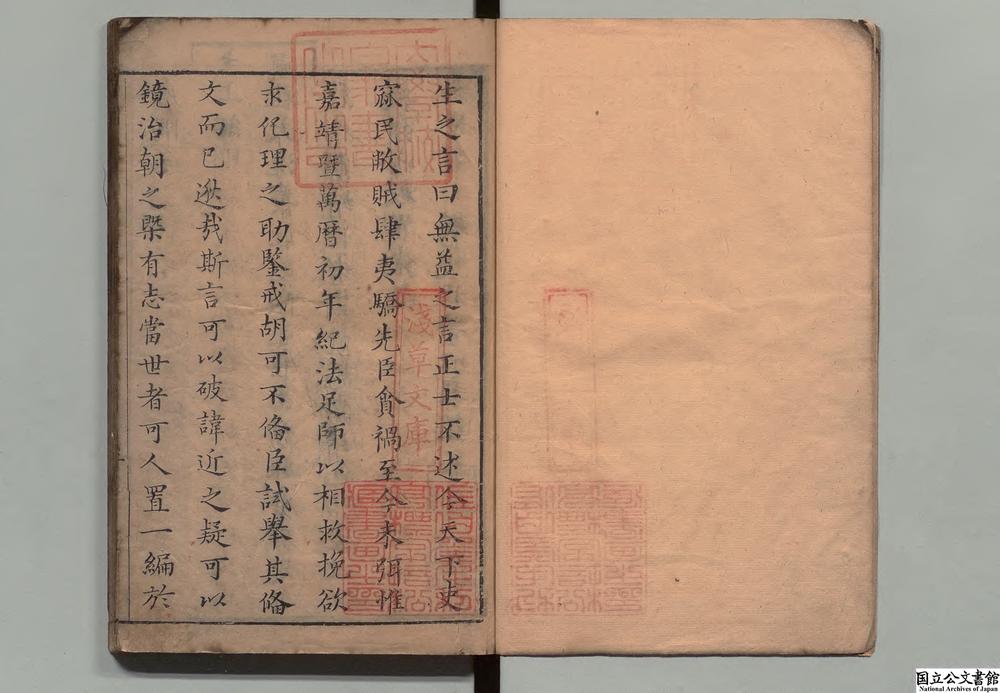 生之言曰無益之言正士不述今天下吏
寐民敝賊肆夷驕先臣貪禍至今未弭惟
嘉靖暨萬曆初年紀法足師以相救挽欲
求化理之助鑒戒胡可不俻臣試舉其俻
文而已逖哉斯言可以破諱近之疑可以
鏡治朝之槩有志當世者可人置一編於
淺草文庫
国立公文書館
National Archives of Japan